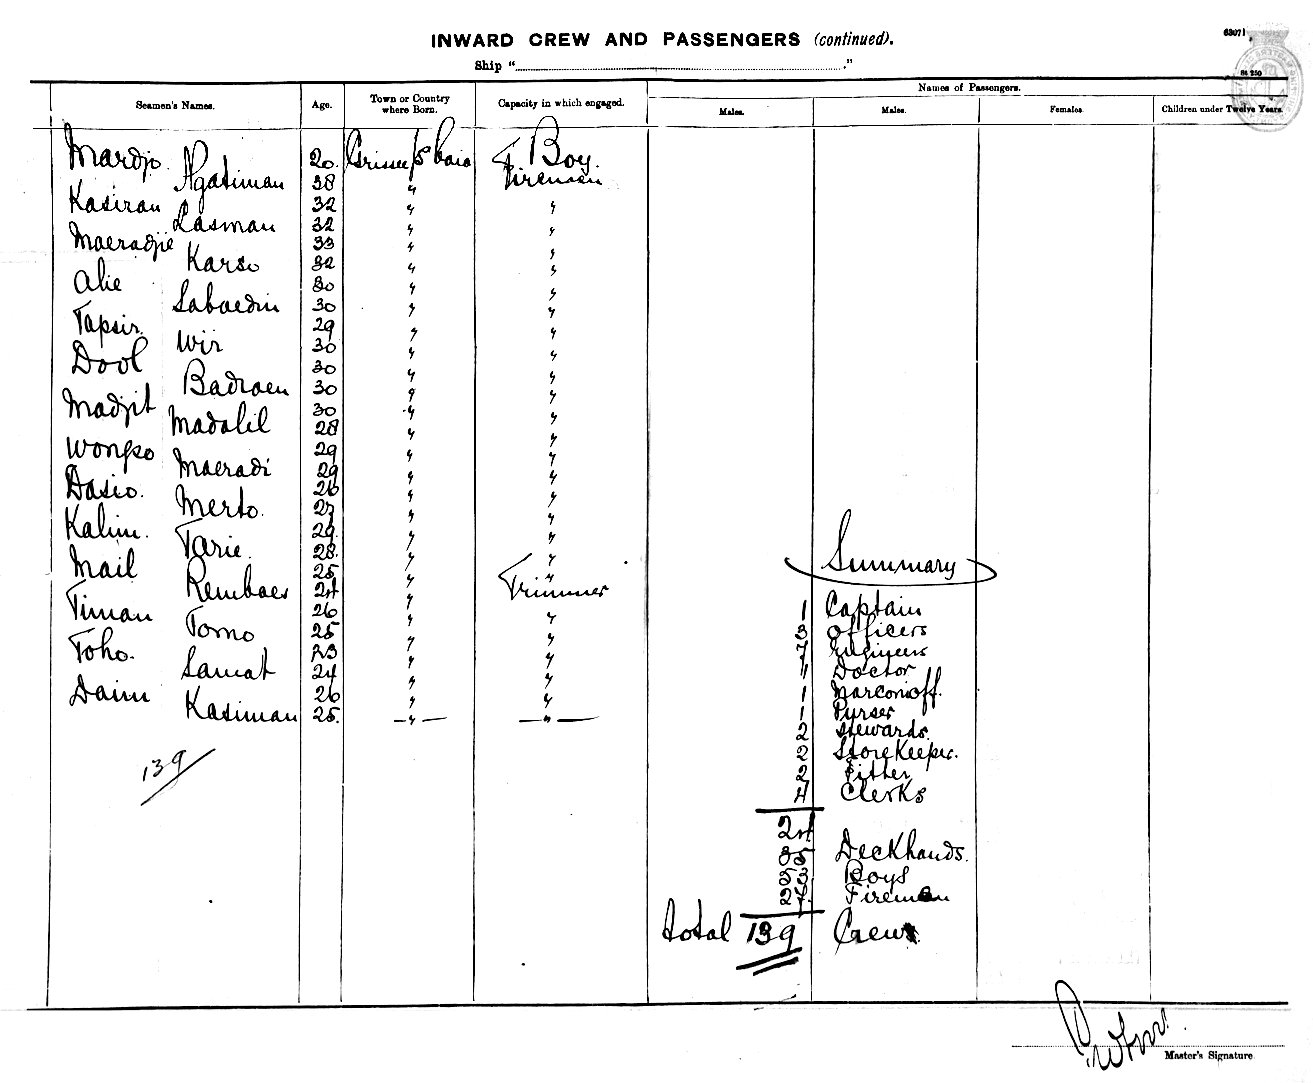 63071
INWARD CREW AND PASSENGERS (continued).
Ship “ .”
84 250
Seamen's Names. Age. Town or Country where Born. Capacity in which engaged. Names of Passengers.
Males. Males. Females. Children under Twelve Years.
Mardjo. 20. Boy.
Agasiman 38 " Firemen
Kasiran 32 " "
Lasman 32 " "
Maeradjie 33 " "
Karso 32 " "
Alie 30 " "
Saboedin 30 " "
Tapsir. 29 " "
Wir 30 " "
Dool 30 " "
Badroen 30 " "
Madjit 30 " "
Madalil 28 " "
Wongso 29 " "
Maeradi 29 " "
Dasio. 26 " "
Merto. 27 " "
Kalim. 29. " "
Tarie. 28. " "
Mail 25 " "
Remboes 24 " Trimmer
Timan 26 " "
Tomo 25 " "
Toho. 23 " "
Samat 24 " "
Daim 26 " "
Kasiman 25. — " — — " —
139
Summary
1 Captain
3 Officers
7 Engineers
1 Doctor
1 Marconioff.
1 Purser
2 Stewards.
2 Storekeeper.
2 Fitter
4 Clerks
24
35 Deckhands.
53 Boys
27 Firemen
total 139 Crew.
Master's Signature